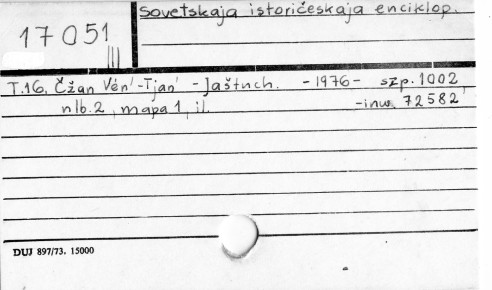 Sovetskaja istoričeskaja enciklop.
17051
T.16. Čžan Vén'-Tjan' - Jaštuch. - 1976 - szp. 1002
nlb. 2, mapa 1, il. - inw. 72582
DUJ 897/73. 15000